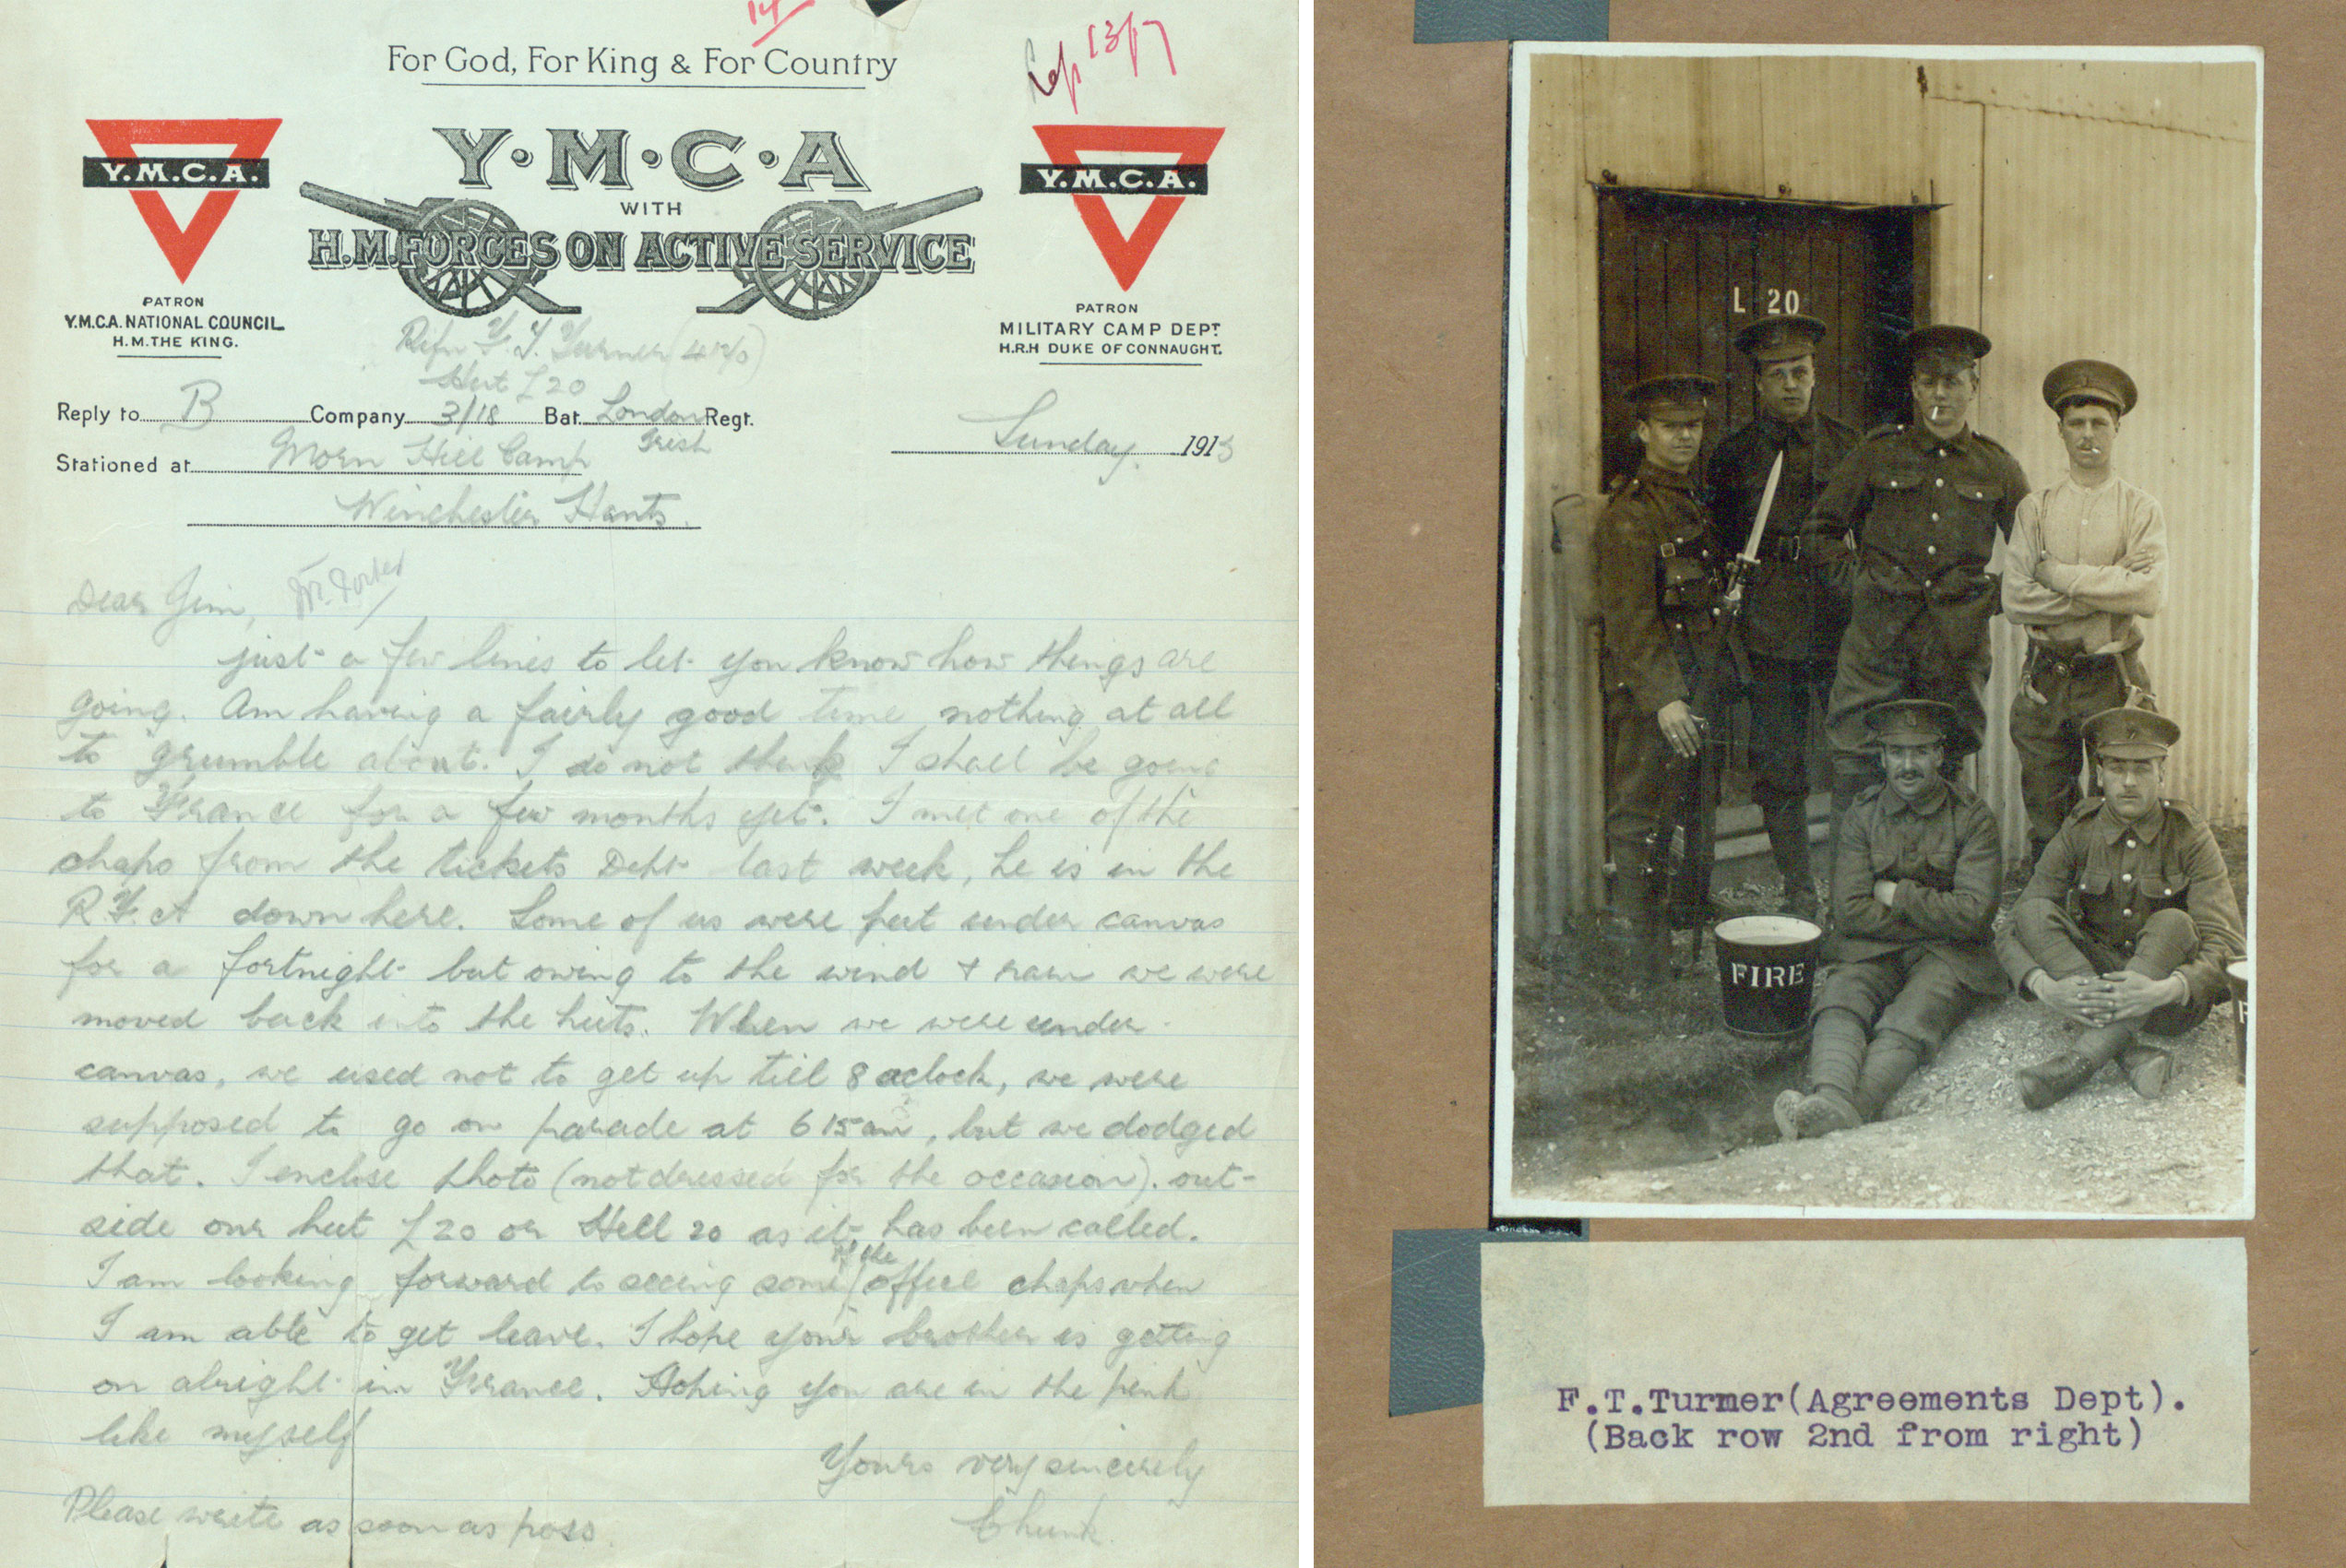 14
For God, For King & For Country
Rep 13/7
Y.M.C.A.
Y·M·C·A
WITH
H.M. FORCES ON ACTIVE SERVICE
Y.M.C.A.
PATRON
Y.M.C.A. NATIONAL COUNCIL
H.M. THE KING.
PATRON
MILITARY CAMP DEPT
H.R.H DUKE OF CONNAUGHT.
Rifn F. T. Turner
Hut L 20
Reply to B Company 3/18 Bat. London Regt.
Irish
Sunday. 191
Stationed at Morn Hill Camp
Winchester Hants.
Dear Jim,
just a few lines to let you know how things are
going. Am having a fairly good time nothing at all
to grumble about. I do not think I shall be going
to France for a few months yet. I met one of the
chaps from the tickets Dept last week, he is in the
R.F.A down here. Some of us were put under canvas
for a fortnight but owing to the wind & rain we were
moved back into the huts. When we were under
canvas, we used not to get up till 8 oclock, we were
supposed to go on parade at 6 15 am, but we dodged
that. I enclose photo (not dressed for the occasion). out-
side our hut L 20 or Hell 20 as it has been called.
I am looking forward to seeing some of the office chaps when
I am able to get leave. I hope your brother is getting
on alright in France. Hoping you are in the pink
like myself
Yours very sincerely
Chunk.
Please write as soon as poss.
L 20
FIRE
F
F.T.Turmer(Agreements Dept).
(Back row 2nd from right)